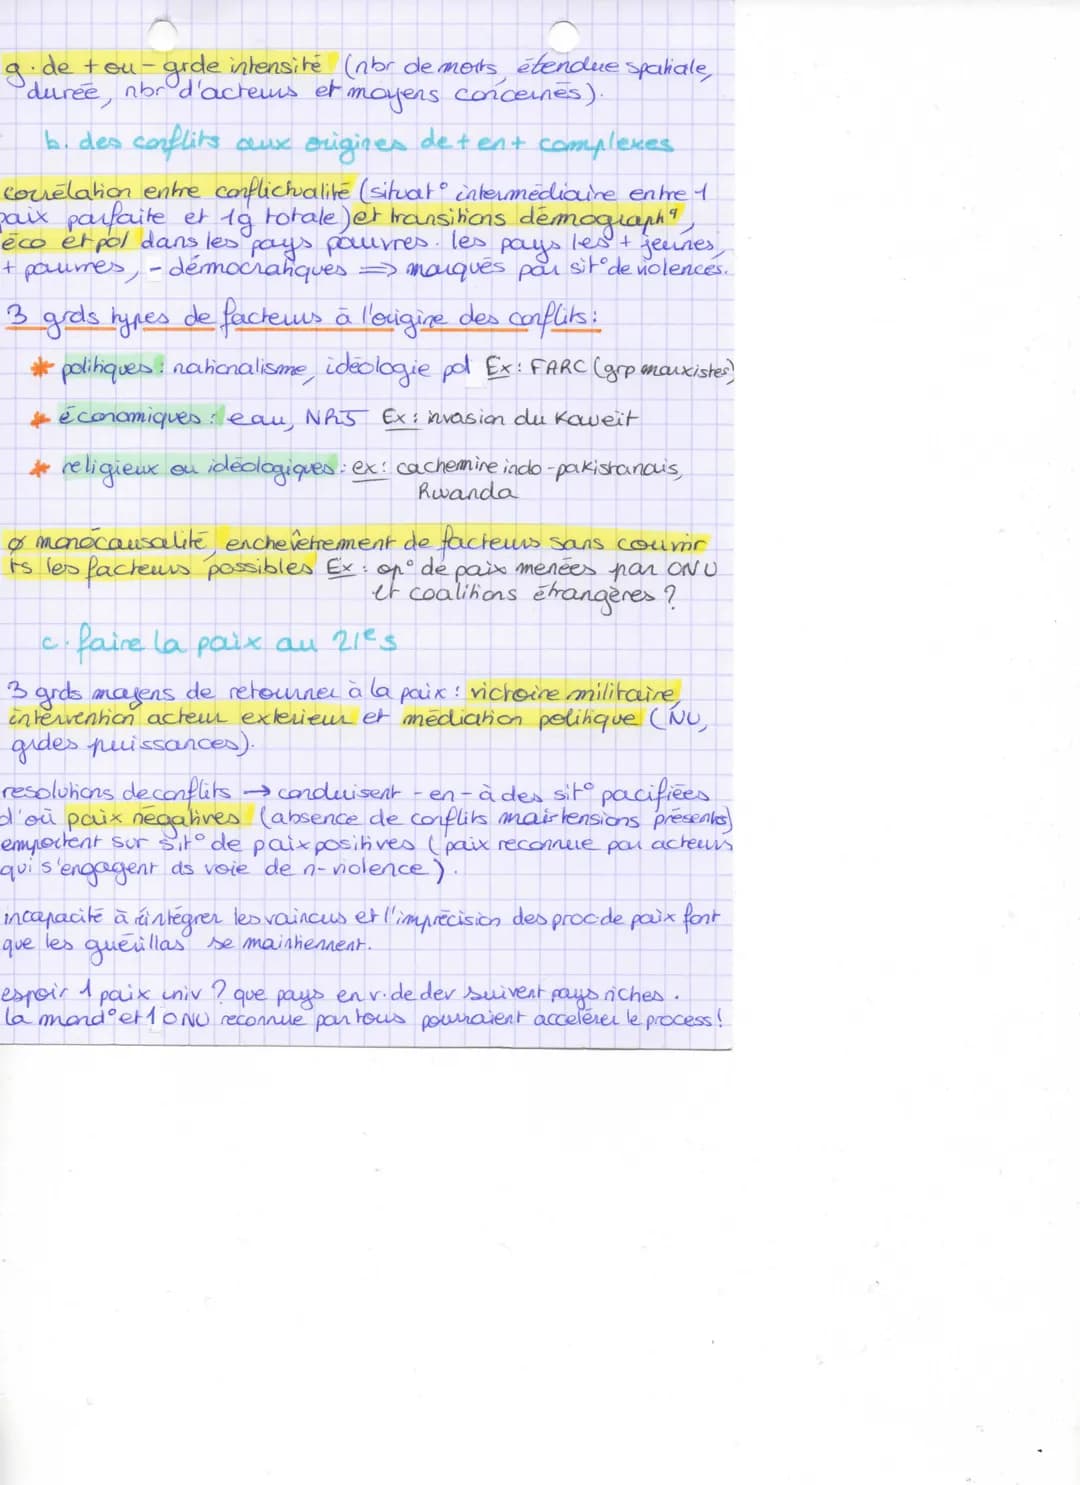 g. de + ou - grde intensité (nbr de morts, étendue spatiale,
durée, nbr d'acteurs et moyens concernés).
b. des conflits aux origines de + en + complexes
corrélation entre conflictualité (situat° intermédiaire entre 1
paix parfaite et 1g totale) et transitions démographq,
éco et pol dans les pays pauvres. les pays les + jeunes,
+ pauvres, - démocratiques => marqués par sit° de violences.
3 grds types de facteurs à l'origine des conflits:
* politiques: nationalisme, idéologie pol Ex: FARC (grp marxistes)
* économiques: eau, NRJ Ex: invasion du Koweit
* religieux ou idéologiques: ex: cachemire indo-pakistanais,
Rwanda
ø monocausalité, enchevêtrement de facteurs sans couvrir
ts les facteurs possibles Ex: op° de paix menées par ONU
et coalitions étrangères?
c. faire la paix au 21e s
3 grds moyens de retourner à la paix: victoire militaire,
intervention acteur exterieur et médiation politique (NU,
grdes puissances).
resolutions de conflits → conduisent - en - à des sit° pacifiées
d'où paix négatives (absence de conflits mais tensions présentes)
emportent sur sit° de paix positives (paix reconnue par acteurs
qui s'engagent ds voie de n-violence).
incapacité à réintégrer les vaincus et l'imprécision des proc de paix font
que les guérillas se maintiennent.
espoir 1 paix univ? que pays en v. de dev suivent pays riches.
la mond° et 1 ONU reconnue par tous pourraient accelérer le process!